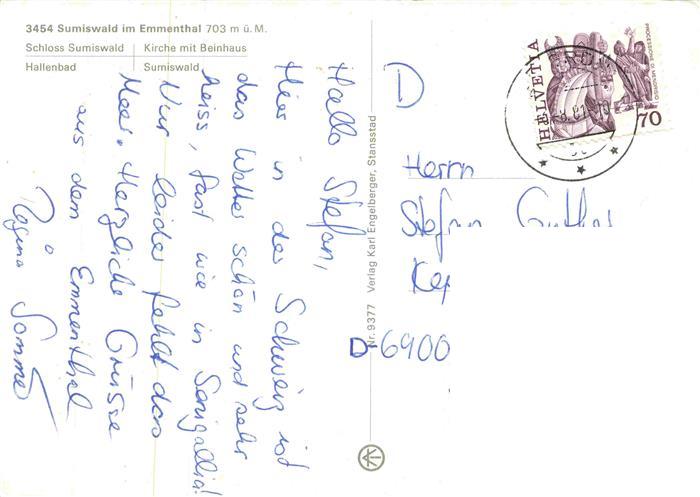 3454 Sumiswald im Emmenthal 703 m ü. M.
Schloss Sumiswald
Hallenbad
Kirche mit Beinhaus
Sumiswald
Hallo Stefan,
Hier in der Schweiz ist
das Wetter schön und sehr
heiss, fast wie in Senigallia!
Nur leider fehlt das
Meer. Herzliche Grüsse
aus dem Emmenthal
Regina Sommer
Nr. 9377 Verlag Karl Engelberger, Stansstad
D
HELVETIA
70
Herrn
Stefan
D-6900